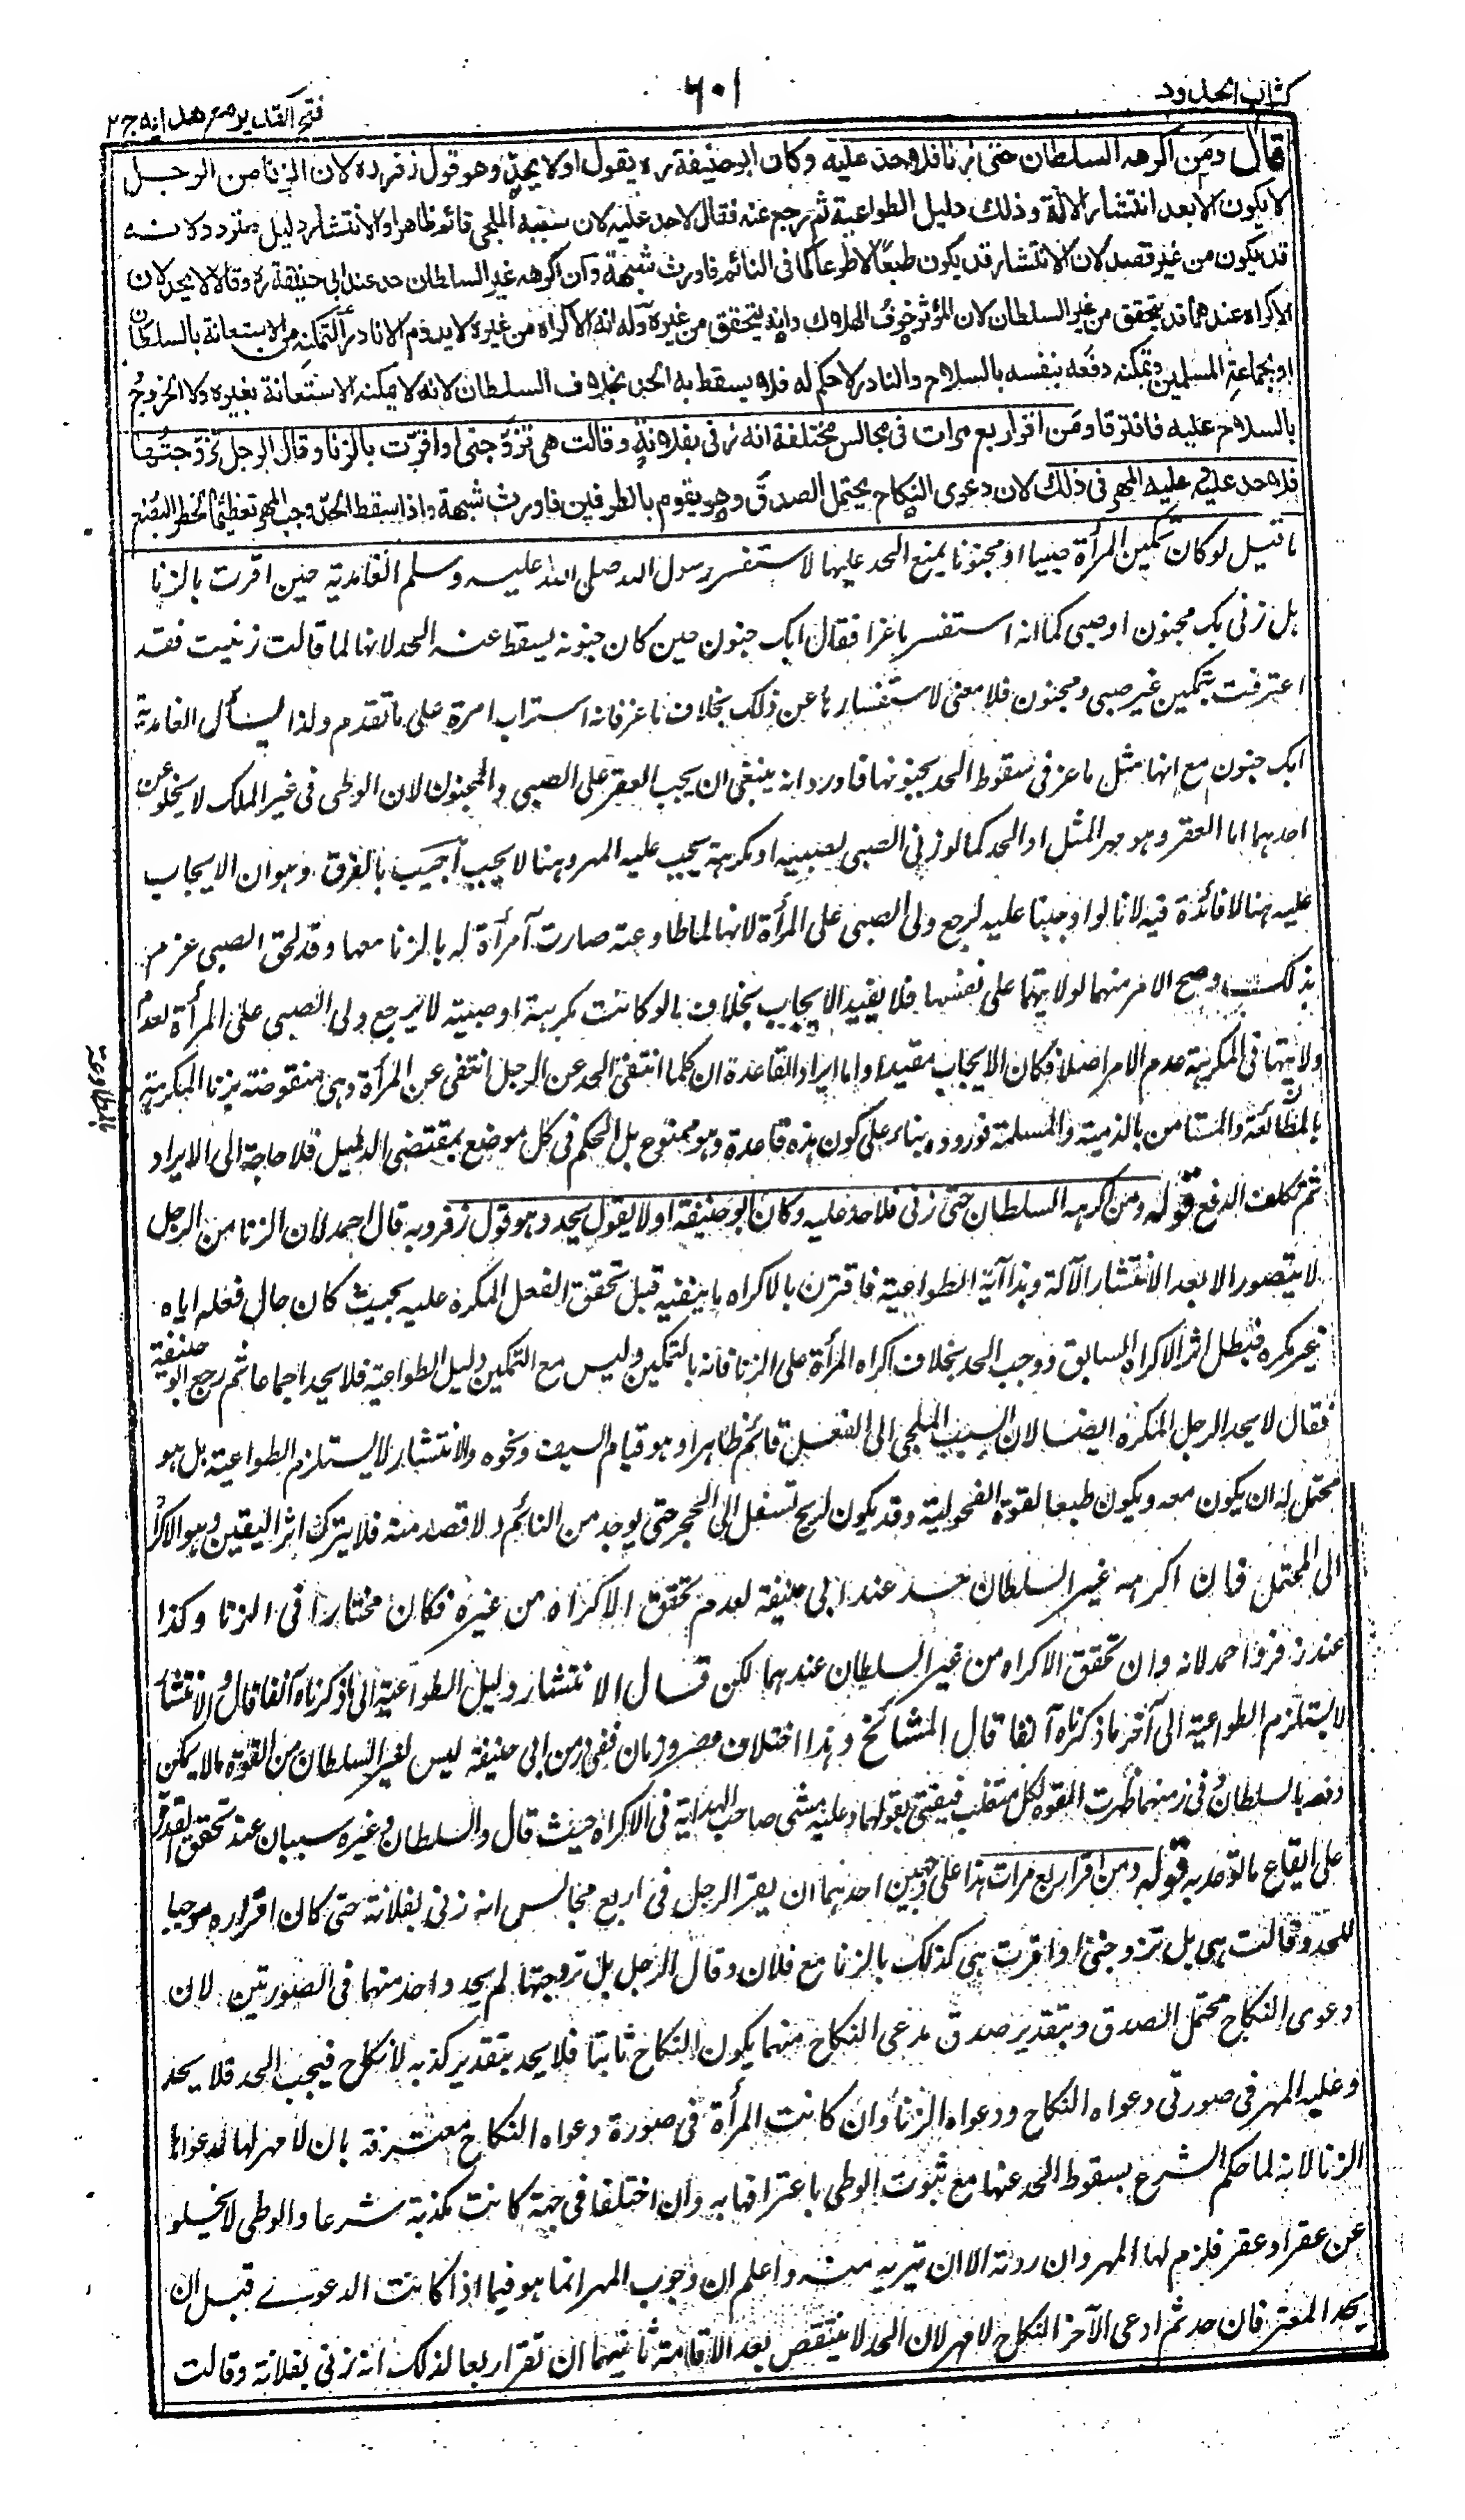 كتاب الحدود
٦٠١
فتح القدير مع هدايه ج ٢
قال ومن اكرهه السلطان حتى زنا فلا حد عليه وكان ابو حنيفة رہ يقول اولا يحد وهو قول زفر رہ لان الزنا من الرجل
لا يكون الا بعد انتشار الالة وذلك دليل الطواعية ثم رجع عنه فقال لا حد عليه لان سببه الملجي قائم ظاهرا والانتشار دليل متردد لانه
قد يكون من غير قصد لان الانتشار قد يكون طبعا لا طوعا كما في النائم فاورث شبهة وان اكرهه غير السلطان حد عند ابي حنيفة رہ وقالا لا يحد لان
الاكراه عندهما قد يتحقق من غير السلطان لان المؤثر خوف الهلاك وانه يتحقق من غيره وله ان الاكراه من غيره لا يدوم الا نادرا لتمكنه من الاستعانة بالسلطان
او بجماعة المسلمين وتمكنه دفعه بنفسه بالسلاح والنادر لا حكم له فلا يسقط به الحد بخلاف السلطان لانه لا يمكنه الاستعانة بغيره ولا الخروج
بالسلاح عليه فافترقا ومن اقر اربع مرات في مجالس مختلفة انه زنى بفلانة وقالت هي تزوجني او اقرت بالزنا وقال الرجل تزوجتها
فلا حد عليه وعليه المهر في ذلك لان دعوى النكاح يحتمل الصدق وهو يقوم بالطرفين فاورث شبهة واذا سقط الحد وجب المهر تعظيما لخطر البضع
ما قيل لو كان تمكين المرأة صبيا او مجنونا يمنع الحد عليها لاستفسر رسول الله صلى الله عليه وسلم الغامدية حين اقرت بالزنا
هل زنى بك مجنون او صبي كما انه استفسر ماعزا فقال ابك جنون حين كان جنونه يسقط عنه الحد لانها لما قالت زنيت فقد
اعترفت بتمكين غير صبي ومجنون فلا معنى لاستفسارها عن ذلك بخلاف ماعز فانه استراب امره على ما تقدم ولذا لم يسأل الغامدية
ابك جنون مع انها مثل ماعز في سقوط الحد بجنونها فاورد انه ينبغي ان يجب العقر على الصبي والمجنون لان الوطى في غير الملك لا يخلو عن
احدهما اما العقر وهو مهر المثل او الحد كما لو زنى الصبي بصبية او مكرهة يجب عليه المهر وهنا لا يجب اجيب بالفرق وهو ان الايجاب
عليه هنا لا فائدة فيه لانا لو اوجبنا عليه لرجع ولى الصبي على المرأة لانها لما طاوعته صارت آمرة له بالزنا معها وقد لحق الصبي غرم
بذلك وصح الامر منها لولايتها على نفسها فلا يفيد الايجاب بخلاف ما لو كانت مكرهة او صبية لا يرجع ولى الصبي على المرأة لعدم
ولايتها في المكرهة عدم الامر اصلا فكان الايجاب مفيدا واما ايراد القاعدة ان كلما انتفى الحد عن الرجل انتفى عن المرأة وهي منقوضة بزنا المكره
بالمطاوعة والمستامن بالذمية والمسلمة فوروده بناء على كون هذه قاعدة وهو ممنوع بل الحكم في كل موضع بمقتضى الدليل فلا حاجة الى الايراد
ثم تكلف الدفع قوله ومن اكرهه السلطان حتى زنى فلا حد عليه وكان ابو حنيفة اولا يقول يحد وهو قول زفر وبه قال احمد لان الزنا من الرجل
لا يتصور الا بعد الانتشار الآلة وهذا آية الطواعية فاقترن بالاكراه ما ينفيه قبل تحقق الفعل المكره عليه بحيث كان حال فعله اياه
غير مكره فبطل اثر الاكراه السابق ووجب الحد بخلاف اكراه المرأة على الزنا فانه بالتمكين وليس مع التمكين دليل الطواعية فلا يحد اجماعا ثم رجع ابو حنيفة
فقال لا يحد الرجل المكره ايضا لان السبب الملجي الى الفعل قائم ظاهرا وهو قيام السيف ونحوه والانتشار لا يستلزم الطواعية بل هو
محتمل له ان يكون معه ويكون طبعا لقوة الفحولية وقد يكون لريح تسفل الى الحجر حتى يوجد من النائم ولا قصد منه فلا يترك اثر اليقين وهو الاكراه
الى المحتمل فان اكرهه غير السلطان حد عند ابي حنيفة لعدم تحقق الاكراه من غيره فكان مختارا في الزنا وكذا
عند زفر واحمد لانه وان تحقق الاكراه من غير السلطان عندهما لكن قال الانتشار دليل الطواعية الى ما ذكرناه آنفا قال والانتشار
لا يستلزم الطواعية الى آخر ما ذكرناه آنفا قال المشائخ وهذا اختلاف عصر وزمان ففي زمن ابي حنيفة ليس لغير السلطان من القوة ما لا يمكن
دفعه بالسلطان وفي زمنهما ظهرت القوة لكل متغلب فيفتى بقولهما وعليه مشى صاحب الهداية في الاكراه حيث قال والسلطان وغيره سيان عند تحقق القدرة
على ايقاع ما توعد به قوله ومن اقر اربع مرات هذا على وجهين احدهما ان يقر الرجل في اربع مجالس انه زنى بفلانة حتى كان اقراره موجبا
للحد وقالت هي بل تزوجني او اقرت هي كذلك بالزنا مع فلان وقال الرجل بل تزوجتها لم يحد واحد منهما في الصورتين لان
دعوى النكاح محتمل الصدق وبتقدير صدق مدعى النكاح منهما يكون النكاح ثابتا فلا يحد بتقدير كذبه لا نكاح فيجب الحد فلا يحد
وعليه المهر في صورتي دعواه النكاح ودعواه الزنا وان كانت المرأة في صورة دعواه النكاح معترفة بان لا مهر لها لدعواها
الزنا لانه لما حكم الشرع بسقوط الحد عنها مع ثبوت الوطى باعترافها به وان اختلفا في جهة كانت مكذبة شرعا والوطى لا يخلو
عن عقر او عقر فلزم لها المهر وان ردته الا ان تبريه منه واعلم ان وجوب المهر انما هو فيما اذا كانت الدعوى قبل ان
يحد المقر فان حد ثم ادعى الآخر النكاح لا مهر لان الحد لا ينتقض بعد الاقامة ثانيهما ان تقر اربعا لذلك انه زنى بفلانة وقالت